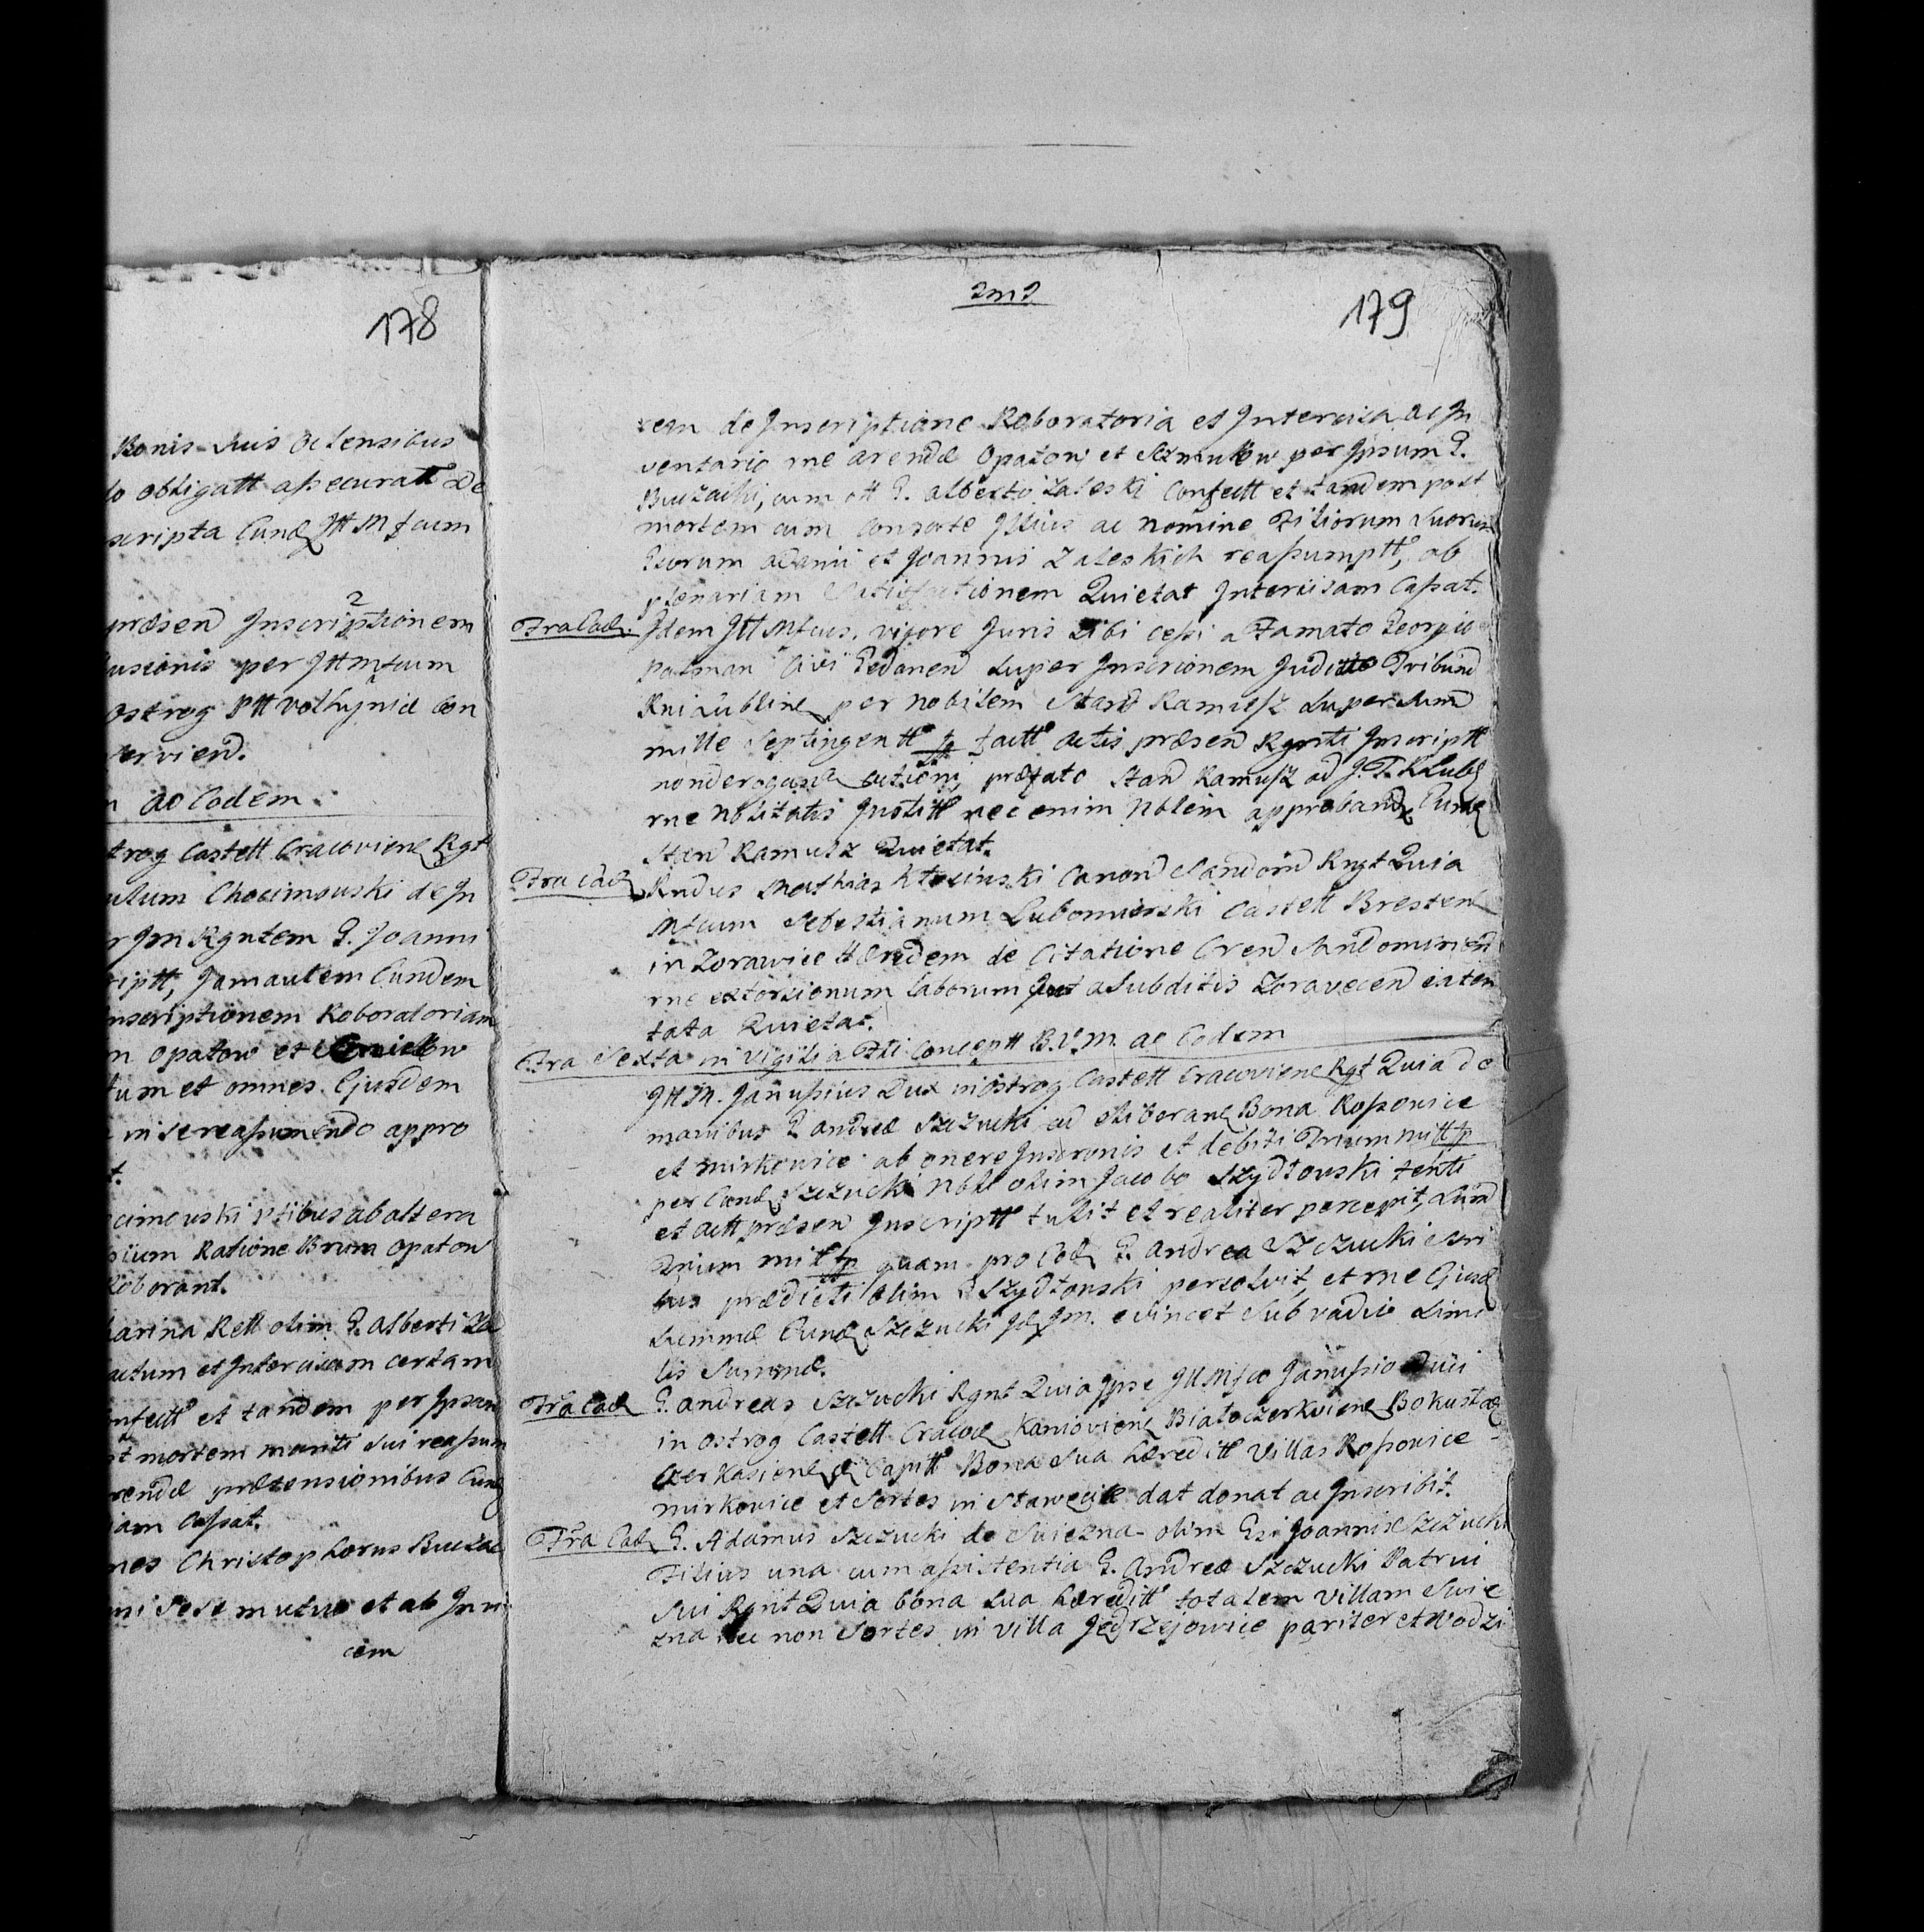 178
Bonis Suis ac Censibus
do obligatt assecuratt de
scripta Eund Ill Mfcum
præsen Inscriptionem
usionis per Ill Mfcum
Ostrog Ptt Volhyniæ con
ervien.
ac Eodem.
trog Castell Cracovien Rgt
ulum Chocimouski de In
r Im Rgntem G. Joanni
riptt, Jam autem Eundem
nscriptionem Roboratoriam
m Opatow et
tum et omnes Ejusdem
in se reassumendo appro
t.
cimouski ptibus ab altera
sium Ratione Brum Opatow
Roborant.
harina Rett olim G. Alberti Za
actum et Intercisam certam
nfectt et tandem per Ipsam
st mortem mariti sui reassum
rendæ prætensionibus Eund
iam Cassat.
nes Christophorus Buczac
ni sese mutuo et ab Invi
cem
179
rem de Inscriptione Roboratoria et Intercisa ac In
ventario rne arendæ Opatow et per Ipsum G.
Buczacki, cum ott G. Alberto Zaleski Confectt et tandem post
mortem cum consorte Illius ac nomine Filiorum Suorum
Gsorum Adami et Joannis Zaleskich reassumptt, ob
plenariam Satisfactionem Quietat Intercisam Cassat.
Fra Ead. Idem Ill Mfcus, vigore Juris Sibi cessi a Famato Georgio
Patman Civi Gedanen Super Inscrionem Judicio Tribun
Rni Lublinen per Nobilem Stan Ramusz Super Sum
mille Septingentt fl factt actis præsen Rgnti Inscriptt
non derogan actioni, præfato Stan Ramusz ad J. T. R Lubl
rne Nobitatis Institt nec enim Noblem approband Eund
Stan Ramusz Quietat.
Fra Ead Rndus Mathias Kłosinski Canon Sandom Rngt Quia
Mfcum Sebestianum Lubomirski Castell Bresten
in Zorawice Hæredem de Citatione Cren Sandomirien
rne extorsionum laborum a Subditis Zoravecen eaten
tata Quietat.
Fra Sexta in Vigilia Fti Conceptt B.V.M. ac Eodem
Ill M. Janussius Dux in Ostrog Castell Cracovien Rgt Quia de
manibus G Andreæ Szczucki ad liberan Bona Rossowice
et Mirkowice ab onere Inscronis et debiti Trium mill fl
per Eund Szczucki Nbli olim Jacobo Szydłouski tenti
et actt præsen Inscriptt tulit et realiter percepit, Sum
Trium mill fl quam pro Eod G. Andrea Szczucki
predicti olim Szydłouski persolvit, et rne Ejusd
Summæ Eund Szczucki Id Im. evincet Sub vadio Simi
lis Summæ.
Fra Ead G. Andreas Szczucki Rgnt Quia Ipse Ill Mfco Janussio Duci
in Ostrog Castell Cracov Kaniovien Białoczerkvien Bokusła
Czerkasien Capitt Bona Sua hæreditt Villas Rossowice
Mirkowice et Sortes in Stawecice dat donat ac Inscribit.
Fra Ead G. Adamus Szczucki de Swiezna olim Gsi Joannis Szczucki
Filius una cum assistentia G. Andreæ Szczucki Patrui
Sui Rgnt Quia bona Sua hæreditt totalem Villam Swie
zna nec non Sortes in Villa Jędrzejowice pariter et Wodzi